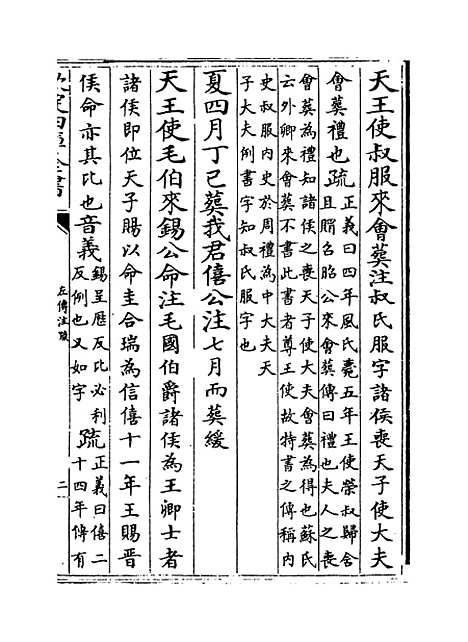 天王使叔服來會葬注叔氏服字諸侯喪天子使大夫
會葬禮也疏正義曰四年風氏薨五年王使榮叔歸含
且賵召昭公來會葬傳曰禮也夫人之喪
會葬為禮知諸侯之喪天子使大夫會葬為得也蘇氏
云外卿來會葬不書此書者尊王使故特書之傳稱内
史叔服内史於周禮為中大夫天
子大夫例書字知叔氏服字也
夏四月丁巳葬我君僖公注七月而葬緩
天王使毛伯來錫公命注毛國伯爵諸侯為王卿士者
諸侯即位天子賜以命圭合瑞為信僖十一年王賜晋
侯命亦其比也音義錫呈歴反比必利
反例也又如字疏正義曰僖二
十四年傳有
欽定四庫全書
左傳注疏
二